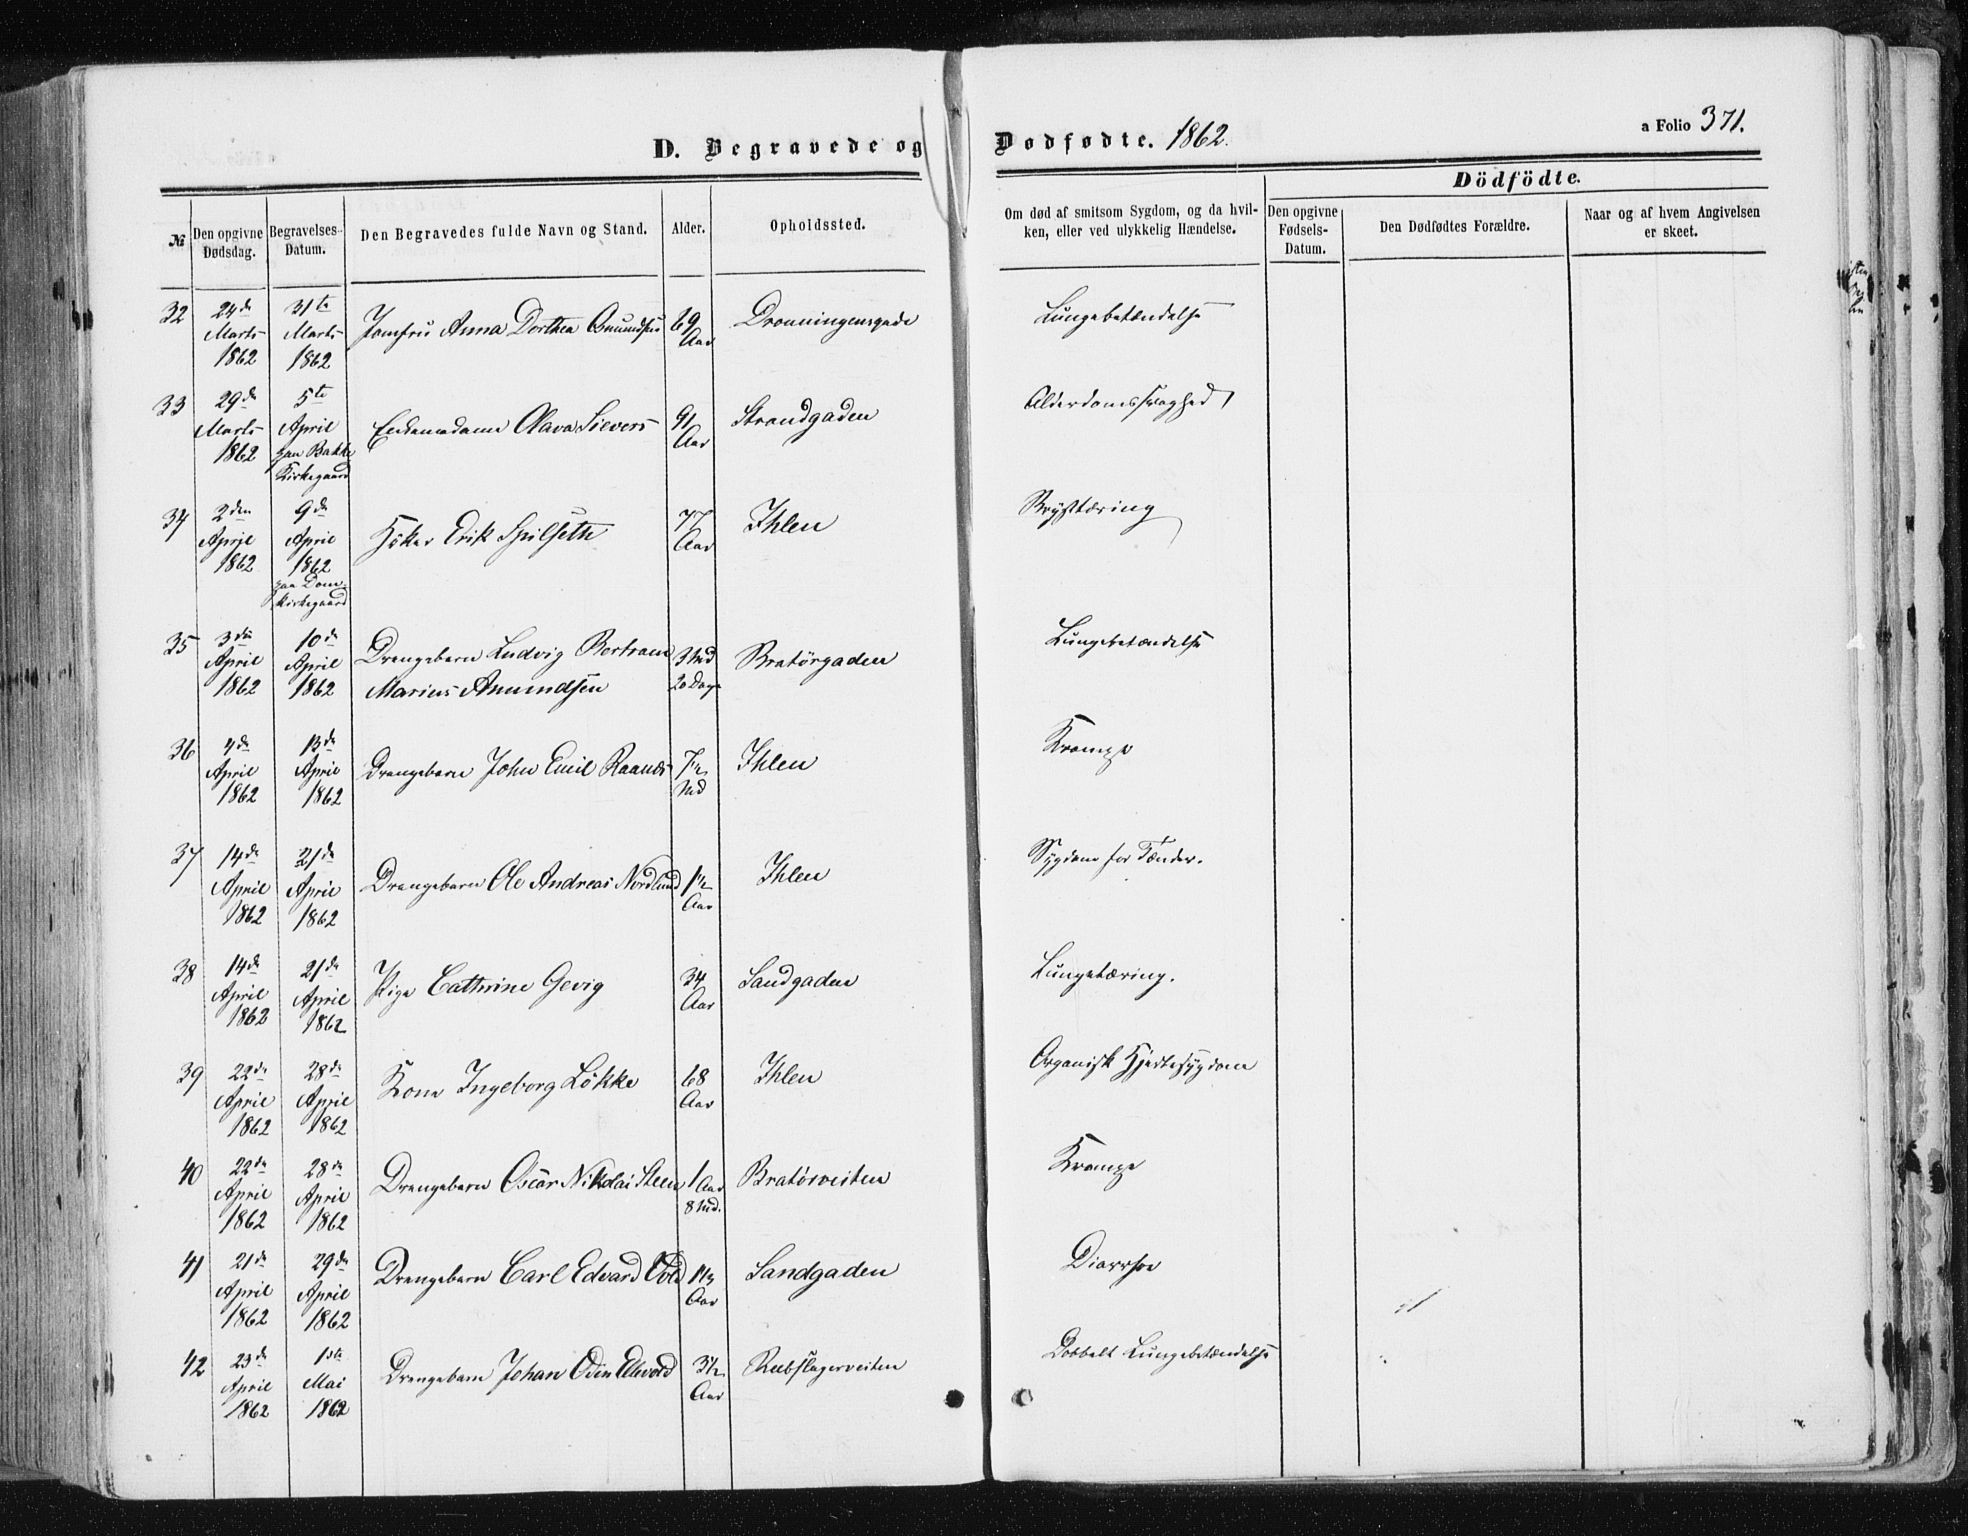 D. Begravede og Dødfødte. 1862. a Folio 371.
Dödfödte.
№ Den opgivne Dødsdag. Begravelses-Datum. Den Begravedes fulde Navn og Stand. Alder. Opholdssted. Om død af smitsom Sygdom, og da hvilken, eller ved ulykkelig Hændelse. Den opgivne Fødsels-Datum. Den Dødfødtes Forældre. Naar og af hvem Angivelsen er skeet.
32 24de Marts 1862 31te Marts 1862 Jomfru Anna Dorthea Amundsen 69 Aar Dronningensgade Lungebetændelse
33 29de Marts 1862 5te April paa Bakke Kirkegaard Enkemadame Olava Sievers 91 Aar Strandgaden Alderdomssvaghed
34 2den April 1862 9de April 1862 paa Dom-kirkegaard Høker Erik Spilseth 77 Aar Ihlen Brysttæring
35 3die April 1862 10de April 1862 Drengebarn Ludvig Bertram Marius Amundsen 3 Md 20 Dage Bratørgaden Lungebetændelse
36 4de April 1862 13de April 1862 Drengebarn John Emil Raanes 7 1/2 Md Ihlen Krampe
37 14de April 1862 21de April 1862 Drengebarn Ole Andreas Nordlund 1 1/2 Aar Ihlen Sygdom for Tænder.
38 14de April 1862 21de April 1862 Pige Cathrine Gevig 34 Aar Sandgaden Lungetæring.
39 22de April 1862 28de April 1862 Kone Ingeborg Løkke 68 Aar Ihlen Organisk Hjertesygdom
40 22de April 1862 28de April 1862 Drengebarn Oscar Nikolai Steen 1 Aar 8 Md. Bratørveiten Krampe
41 21de April 1862 29de April 1862 Drengebarn Carl Edvard 1 1/2 Aar Sandgaden Diarrhoe
42 23de April 1862 1ste Mai 1862 Drengebarn Johan Odin Ellevold 3 1/2 Aar Rebslagerveiten Dobbelt Lungebetændelse